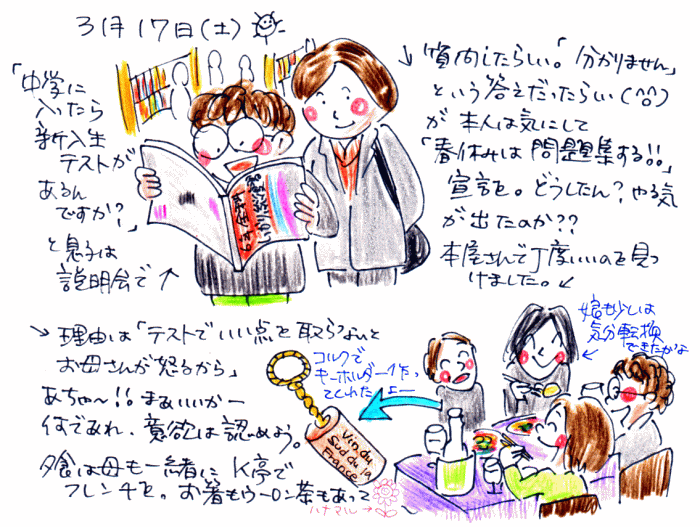 3月17日(土)
「中学に
入ったら
新入生
テストが
あるん
ですか?」
と息子は
説明会で↑
↓質問したらしい。「分かりません」
という答えだったらしい(^^)
が本人は気にして
「春休みは問題集する!!」
宣言を。どうしたん?やる気
が出たのか??
本屋さんで丁度いいのを見つ
けました。↙
↘理由は「テストでいい点を取らないと
お母さんが怒るから」
あちゃ〜!!まぁいいかー
何であれ、意欲は認めよう。
夕食は母も一緒にK亭で
フレンチを。お箸もウーロン茶もあって
ハナマル→
コルクで
キーホルダー作っ
てくれたよー
Vin du
Sud de la
France
娘も少しは
気分転換
できたかな